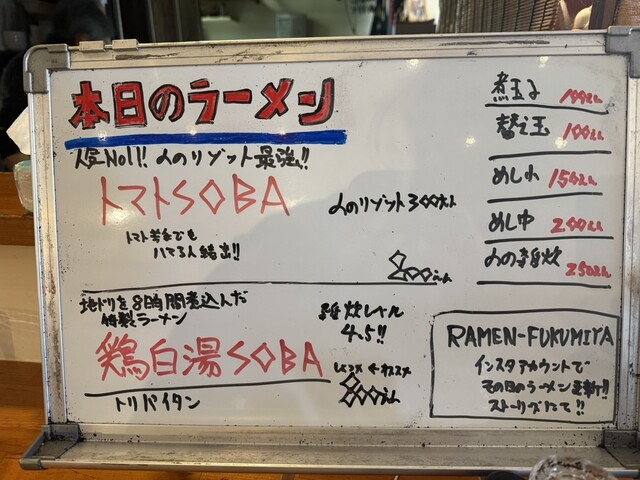 本日のラーメン
人気No1!! 〆のリゾット最強!!
トマトSOBA
〆のリゾット300えん
トマト苦手でも
ハマる人続出!!
800えん
地ドリを8時間煮込んだ
特製ラーメン
雑炊レベル
4.5!!
鶏白湯SOBA
トリパイタン
800えん
煮玉子 100えん
替え玉 100えん
めし小 150えん
めし中 200えん
〆の雑炊 250えん
RAMEN-FUKUMIYA
インスタアカウントで
その日のラーメン更新!!
ストーリーズにて!!